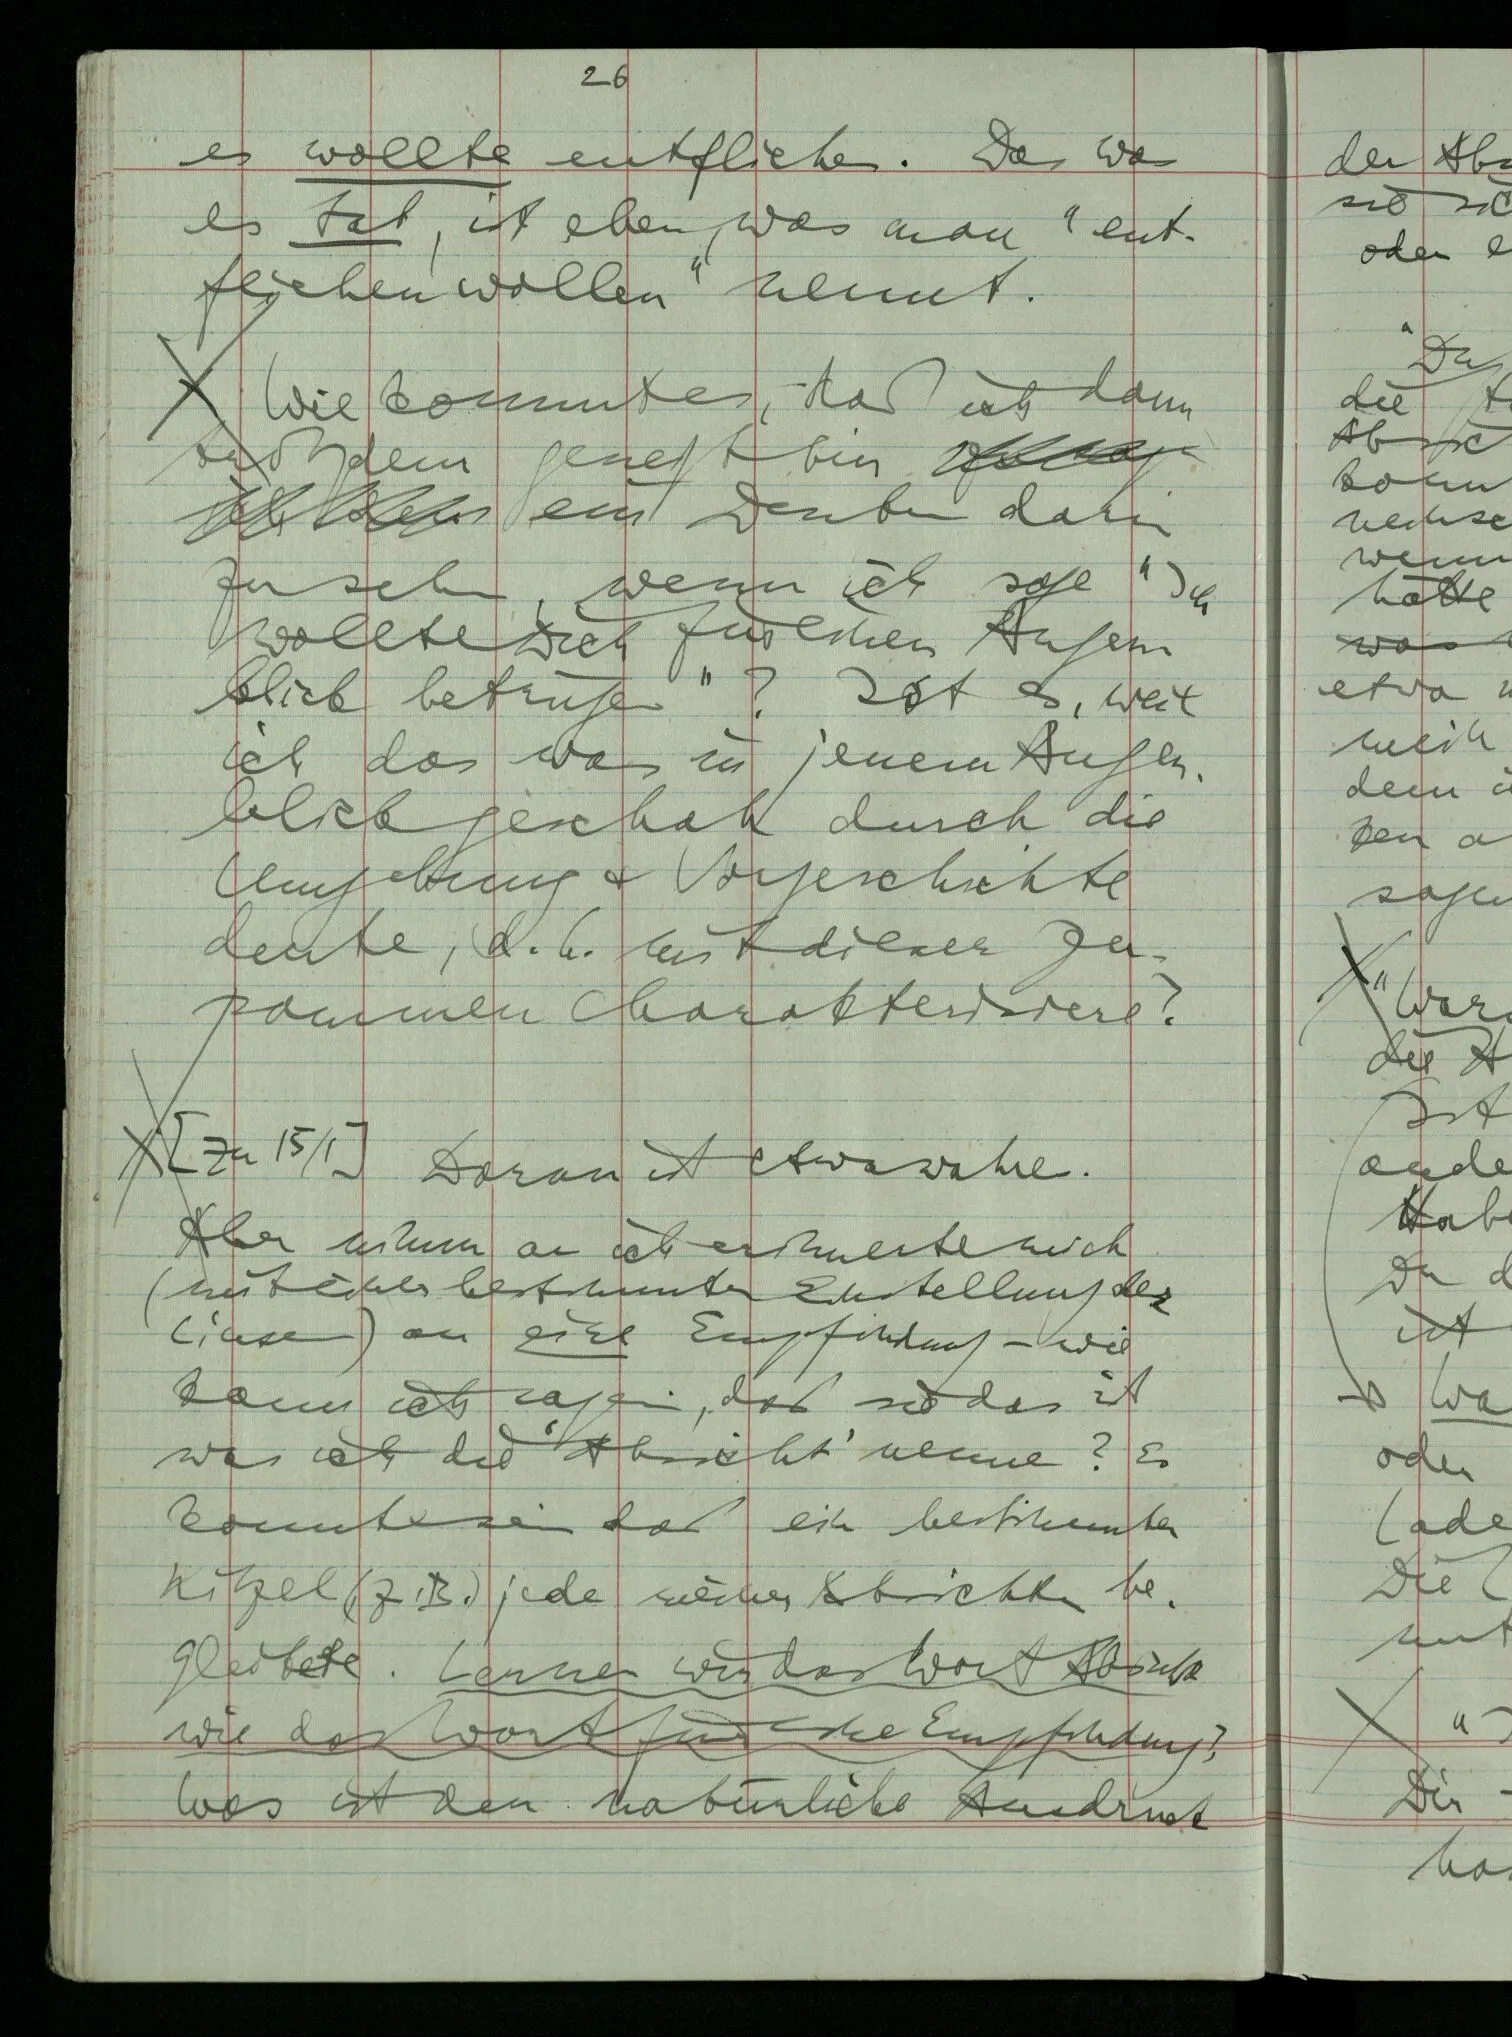 26
es wollte entfliehen. Das was
es tat, ist eben, was man "ent-
fliehen wollen" nennt.
Wie kommt es, daß ich dann
trotzdem geneigt bin
ein Deuten darin
zu sehen, wenn ich sage "Ich
wollte Dich für einen Augen
blick betrügen"? Ist es, weil
ich das was in jenem Augen-
blick geschah durch die
Umgebung & Vorgeschichte
deute, d.h. mit dieser zu-
sammen charakterisiere?
[Zu 15/1] Daran ist etwas wahres.
Aber nimm an ich erinnerte mich
(mit einer bestimmten Einstellung der
Linse) an eine Empfindung – wie
kann ich sagen, daß sie das ist
was ich die 'Absicht' nenne? Es
könnte sein daß ein bestimmter
Kitzel (z.B.) jede meiner Absichten be-
gleitete. Lernen wir das Wort Absicht
wie das Wort für eine Empfindung?
Was ist der natürliche Ausdruck
der
oder
die
wenn
hätte
was
etwa
mich
dem
sagen
die
Ist
ande
Du d
ist
oder
(ode
Die
mit
Dir –